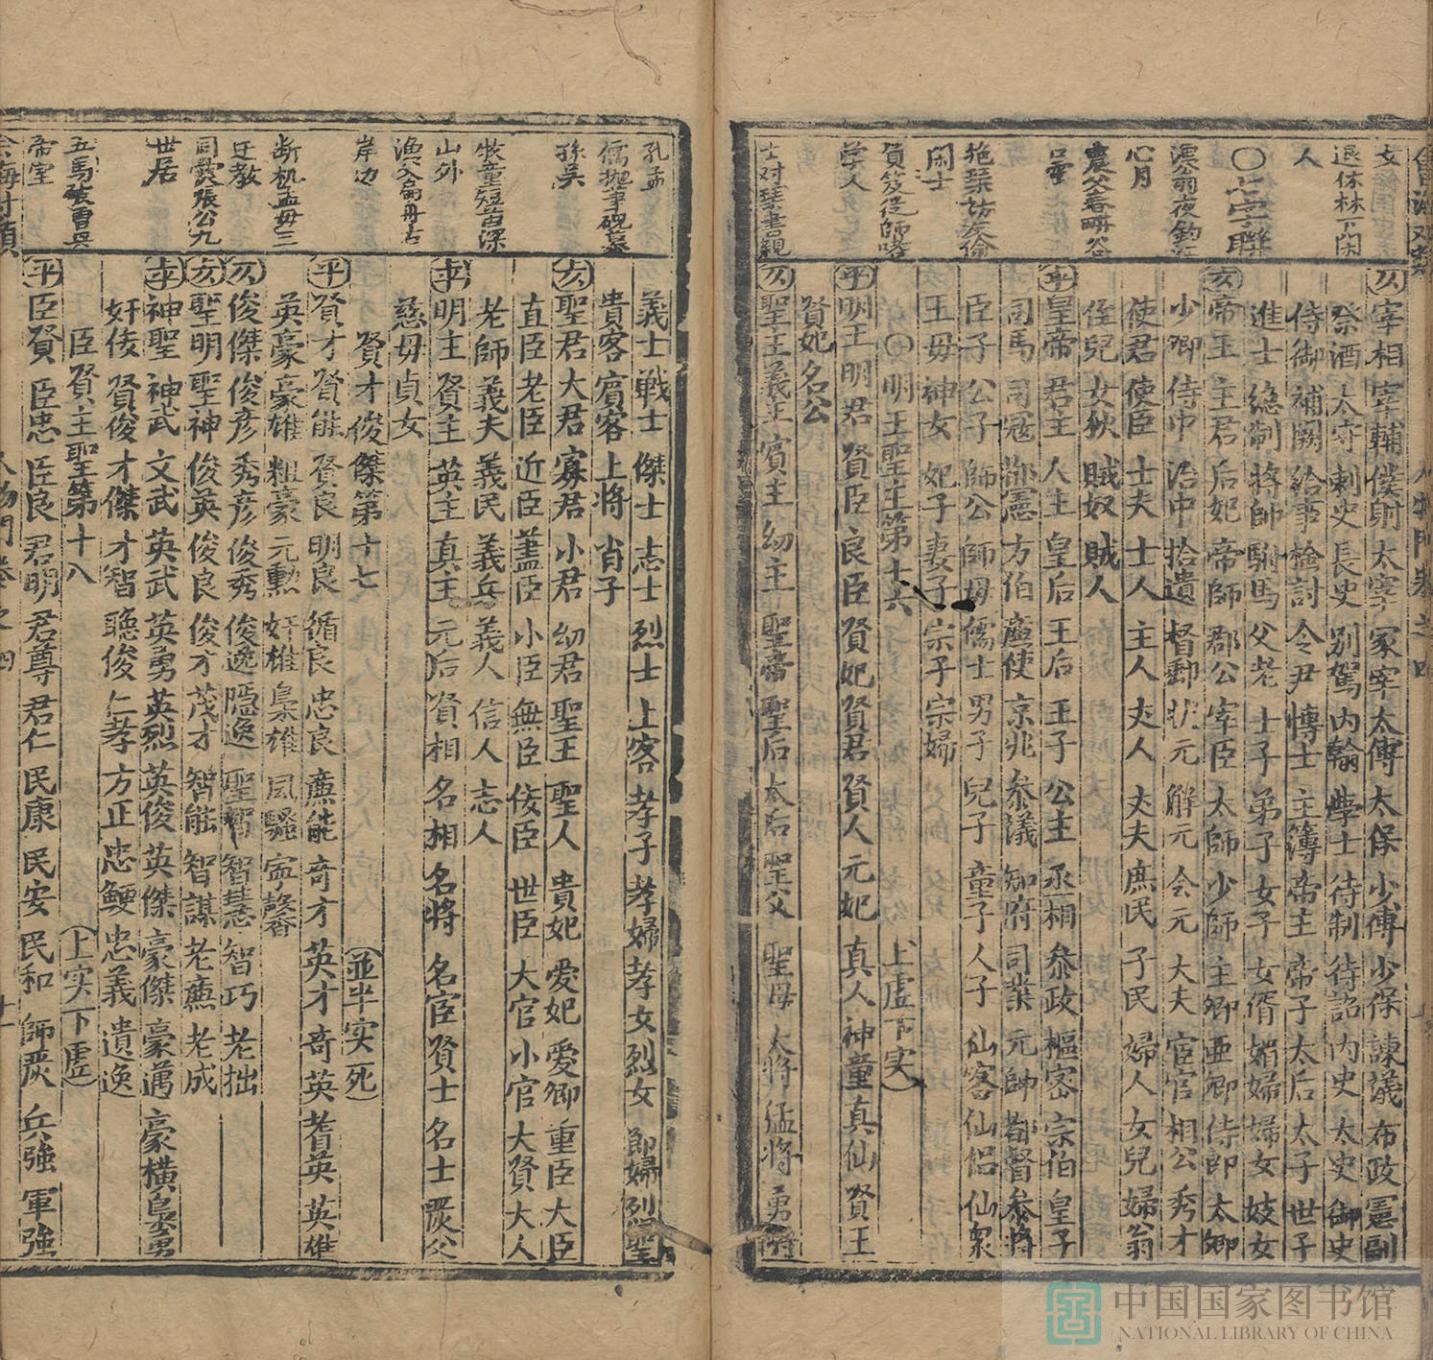 人物門卷之四
女
退休林下閑
人
〇七字聯
漂翁夜釣江
心月
農父春畊谷
口雲
抱琴訪友偷
閑士
負笈從師嗜
學人
士對琴書親
㊀宰相 宰輔 僕射 太宰 冢宰 太傅 太保 少傅 少保 諫議 布政 憲副
祭酒 太守 刺史 長史 別駕 內翰 學士 待制 待詔 內史 太史 御史
侍御 補闕 給事 檢討 令尹 博士 主簿 帝主 帝子 太后 太子 世子
進士 總制 將帥 駙馬 父老 士子 弟子 女子 女婿 媳婦 婦女 妓女
帝王 主君 后妃 帝師 郡公 宰臣 太師 少師 主卿 亜卿 侍郎 太卿
少卿 侍中 治中 拾遺 督郵 状元 解元 会元 大夫 宦官 相公 秀才
使君 使臣 士夫 士人 主人 夫人 夫夫 庶民 子民 婦人 女兒 婦翁
侄兒 女秋 賊奴 賊人
平 皇帝 君主 人主 皇后 王后 王子 公主 丞相 叅政 樞密 宗伯 皇子
司馬 司冦 弥憲 方伯 廉使 京兆 叅議 知府 司業 元帥 都督 叅將
臣子 公子 師公 師母 儒士 男子 兒子 童子 人子 仙客 仙侣 仙衆
王母 神女 妃子 妻子 宗子 宗婦
〇明王聖主第十六 (上虛下実)
平 明王 明君 賢臣 良臣 賢妃 賢君 賢人 元妃 真人 神童 真仙 賢王
賢妃 名公
聖主 義主 賓主 幼主 聖帝 聖后 太后 聖父 聖母 大將 猛將 勇將
孔孟
儒墨事硯墓
孫吴
牧童短笛深
山外
漁父扁舟古
岸边
断机孟母三
迁教
同爨張公九
世居
五馬破曹吳
帝室
義士 戰士 傑士 志士 烈士 上客 孝子 孝婦 孝女 烈女 節婦 烈聖
貴客 賓客 上將 肖子
聖君 大君 寡君 小君 幼君 聖王 聖人 貴妃 愛妃 愛卿 重臣 大臣
直臣 老臣 近臣 藎臣 小臣 無臣 佞臣 世臣 大官 小官 大賢 大人
老師 義夫 義民 義兵 義人 信人 志人
平 明主 賢主 英主 真主 元后 賢相 名相 名將 名宦 賢士 名士 嚴父
慈母 貞女
賢才俊傑第十七 (並半実死)
平 賢才 賢能 賢良 明良 循良 忠良 廉能 奇才 英才 奇英 耆英 英雄
英豪 豪雄 粗豪 元勳 奸雄 梟雄 風騷 寧馨
俊傑 俊彦 秀彦 俊秀 俊逸 隱逸 聖哲 智慧 智巧 老拙
聖明 聖神 俊英 俊良 俊才 茂才 智能 智謀 老蕉 老成
平 神聖 神武 文武 英武 英勇 英烈 英俊 英傑 豪傑 豪邁 豪橫 梟勇
奸佞 賢俊 才傑 才智 聰俊 仁孝 方正 忠鯁 忠義 遺逸
臣賢主聖第十八 (上实下虛)
平 臣賢 臣忠 臣良 君明 君尊 君仁 民康 民安 民和 師嚴 兵強 軍強